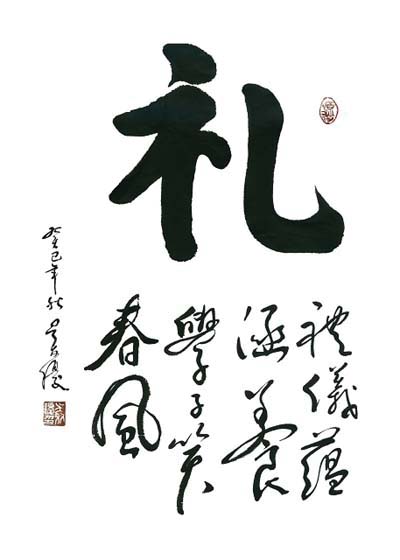 礼
禮儀蘊
涵養
學子笑
春風
癸巳年秋